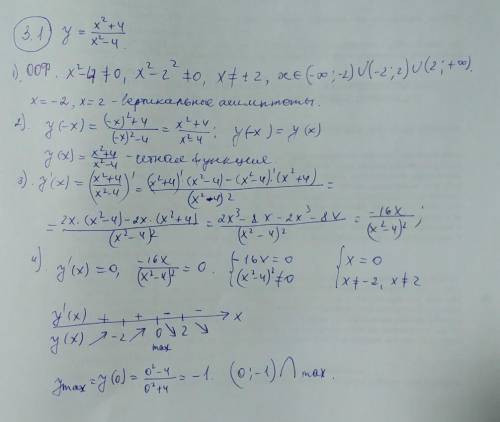 3.1 y = (x²+4)/(x²-4)
1). ООФ. x²-4≠0, x²-2²≠0, x≠±2, x∈(-∞;-2)∪(-2;2)∪(2;+∞).
x=-2, x=2 - вертикальные асимптоты.
2). y(-x) = ((-x)²+4)/((-x)²-4) = (x²+4)/(x²-4); y(-x) = y(x)
y(x) = (x²+4)/(x²-4) - четная функция
3) y'(x) = ((x²+4)/(x²-4))' = ((x²+4)'(x²-4)-(x²-4)'(x²+4))/(x²-4)² =
= (2x·(x²-4)-2x·(x²+4))/(x²-4)² = (2x³-8x-2x³-8x)/(x²-4)² = -16x/(x²-4)²;
4) y'(x)=0, -16x/(x²-4)² = 0. {-16x=0 {x=0
{(x²-4)²≠0 {x≠-2, x≠2
y'(x) + + - - x
y(x) ↗ -2 ↗ 0 ↘ 2 ↘
max
ymax = y(0) = (0²-4)/(0²+4) = -1. (0;-1) ⋂ max.